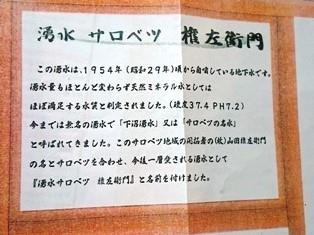 湧水 サロベツ 権左衛門
この湧水は、1954年(昭和29年)頃から自噴している地下水です。
湧水量もほとんど変わらず天然ミネラル水としては
ほぼ満足する水質と判定されました。(硬度37.4 PH7.2)
今までは無名の湧水で「下沼湧水」又は「サロベツの名水」
と呼ばれてきました。このサロベツ地域の開拓者の(故)山田権左衛門
の名とサロベツを合わせ、今後一層愛される湧水として
『湧水サロベツ 権左衛門』と名前を付けました。